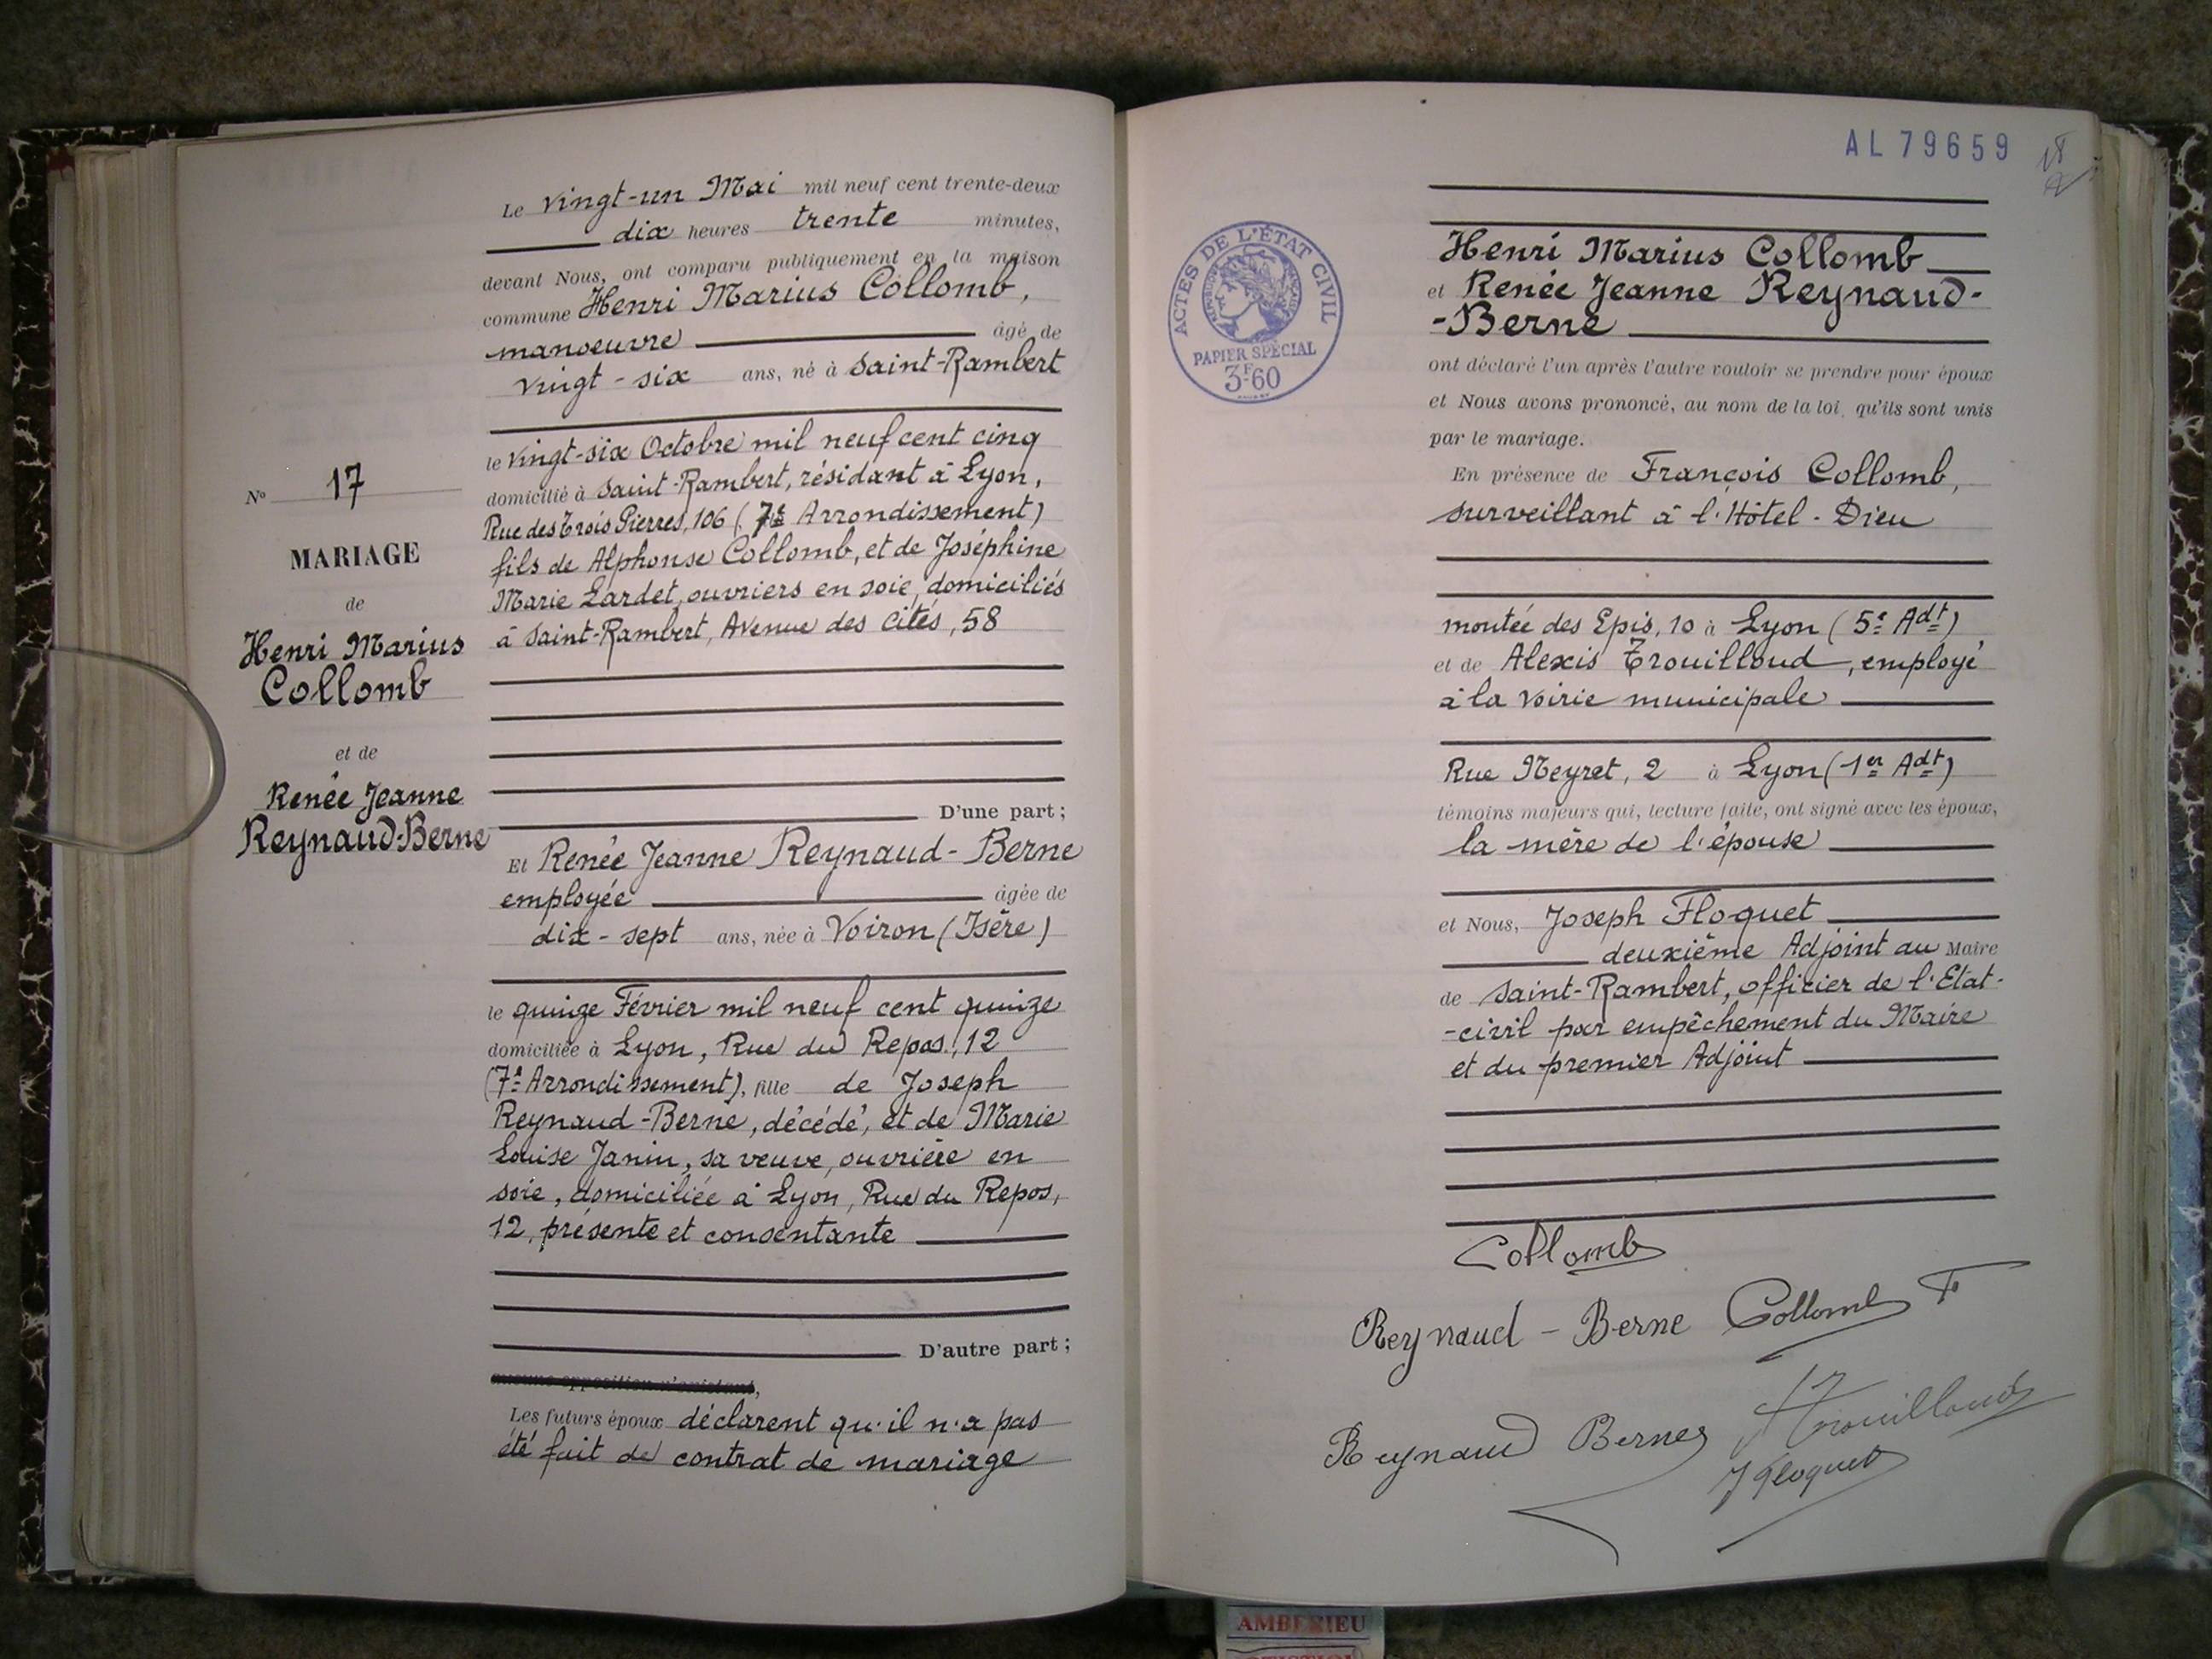 Le vingt-un Mai mil neuf cent trente-deux
dix heures trente minutes,
devant Nous, ont comparu publiquement en la maison
commune Henri Marius Collomb,
manoeuvre âgé de
vingt-six ans, né à Saint-Rambert
le vingt-six Octobre mil neuf cent cinq
domicilié à Saint-Rambert, résidant à Lyon,
Rue des Trois Pierres, 106 (7e Arrondissement)
fils de Alphonse Collomb, et de Joséphine
Marie Lardet, ouvriers en soie, domiciliés
à Saint-Rambert, Avenue des Cités, 58
D'une part;
Et Renée Jeanne Reynaud-Berne
employée âgée de
dix-sept ans, née à Voiron (Isère)
le quinze Février mil neuf cent quinze
domiciliée à Lyon, Rue du Repos, 12
(7e Arrondissement), fille de Joseph
Reynaud-Berne, décédé, et de Marie
Louise Janin, sa veuve, ouvrière en
soie, domiciliée à Lyon, Rue du Repos,
12, présente et consentante
D'autre part;
aucune opposition n'existant,
Les futurs époux déclarent qu'il n'a pas
été fait de contrat de mariage
No 17
MARIAGE
de
Henri Marius
Collomb
et de
Renée Jeanne
Reynaud-Berne
AL 79659
ACTES DE L'ÉTAT CIVIL
PAPIER SPÉCIAL
3F60
Henri Marius Collomb
et Renée Jeanne Reynaud-
-Berne
ont déclaré l'un après l'autre vouloir se prendre pour époux
et Nous avons prononcé, au nom de la loi, qu'ils sont unis
par le mariage.
En présence de François Collomb,
surveillant à l'Hôtel-Dieu
montée des Epis, 10 à Lyon (5e Adt)
et de Alexis Trouilloud, employé
à la Voirie municipale
Rue Neyret, 2 à Lyon (1er Adt)
témoins majeurs qui, lecture faite, ont signé avec les époux,
la mère de l'épouse
et Nous, Joseph Floquet
deuxième Adjoint au Maire
de Saint-Rambert, officier de l'Etat-
-civil par empêchement du Maire
et du premier Adjoint
Collomb
Reynaud-Berne Collomb F
Reynaud Berne Trouilloud
J Floquet
AMBERIEU